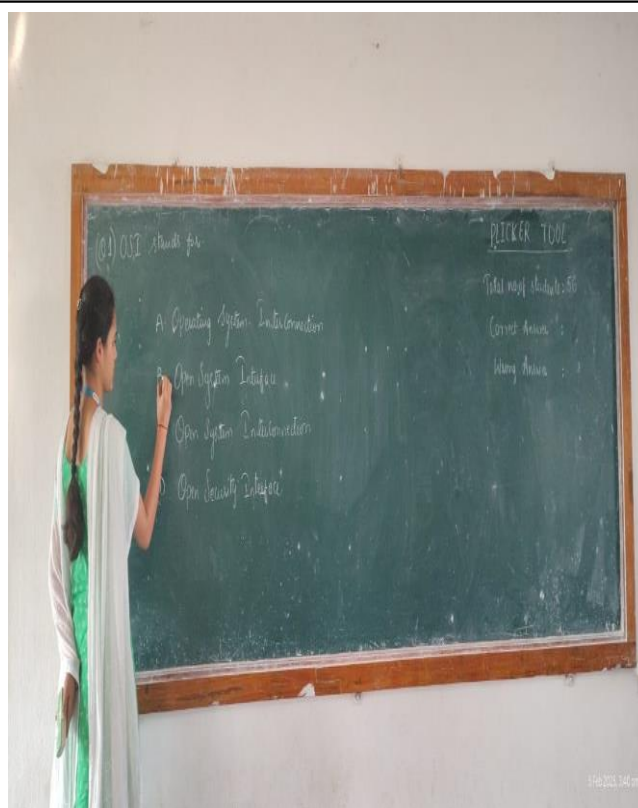 Q1) OSI stands for
A Operating System Interconnection
B Open System Interface
Open System Interconnection
D Open Security Interface
PLICKER TOOL
Total no. of students: 56
Correct Answer :
Wrong Answer :
5 Feb 2025, 3:40 pm